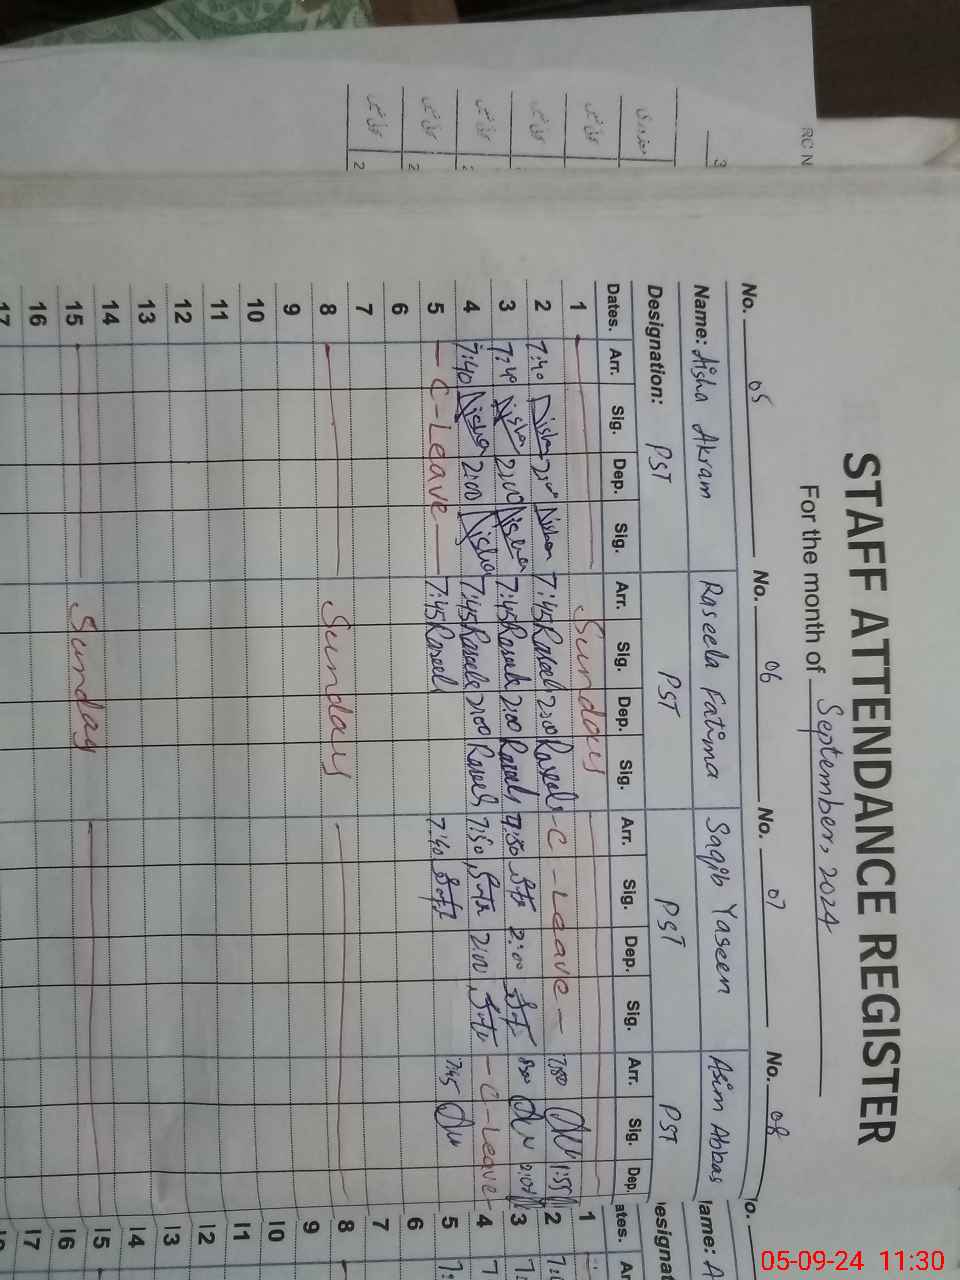 STAFF ATTENDANCE REGISTER
For the month of September, 2024
No. 05 No. 06 No. 07 No. 08
Name: Aisha Akram Raseela Fatima Saqib Yaseen Asim Abbas
Designation: PST PST PST PST
Dates. Arr. Sig. Dep. Sig. Arr. Sig. Dep. Sig. Arr. Sig. Dep. Sig. Arr. Sig. Dep. ates. Ar
1 Sunday 1
2 7:40 Aisha 2:00 Aisha 7:45 Raseela 2:00 Raseela - C - Leave - 7:50 1:55 2
3 7:40 Aisha 2:00 Aisha 7:45 Raseela 2:00 Raseela 7:50 2:00 8:00 2:01 3
4 7:40 Aisha 2:00 Aisha 7:45 Raseela 2:00 Raseela 7:50 2:00 - C - Leave - 4
5 - C - Leave - 7:45 Raseela 7:40 7:45 5
6 6
7 7
8 Sunday 8
9 9
10 10
11 11
12 12
13 13
14 14
15 Sunday 15
16 16
17 17
RC N
05-09-24 11:30